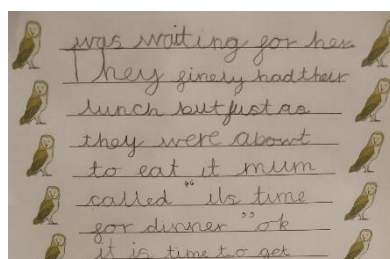 was waiting for her
They finely had their
lunch but just as
they were about
to eat it mum
called "its time
for dinner" ok
it is time to get